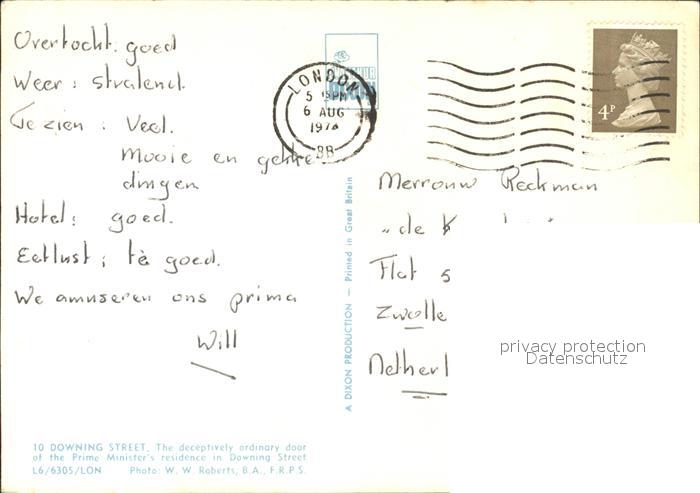 Overtocht: goed
Weer: stralend.
Gezien: Veel.
Mooie en gekke
dingen
Hotel: goed.
Eetlust: tè goed.
We amuseren ons prima
Will
LONDON
5 15PM
6 AUG
197
BB
DIXON
4P
Merrouw Reckman
"de K
Flat 5
Zwolle
Netherl
A DIXON PRODUCTION — Printed in Great Britain
privacy protection
Datenschutz
10 DOWNING STREET. The deceptively ordinary door
of the Prime Minister's residence in Downing Street
L6/6305/LON Photo: W. W. Roberts, B.A., F.R.P.S.